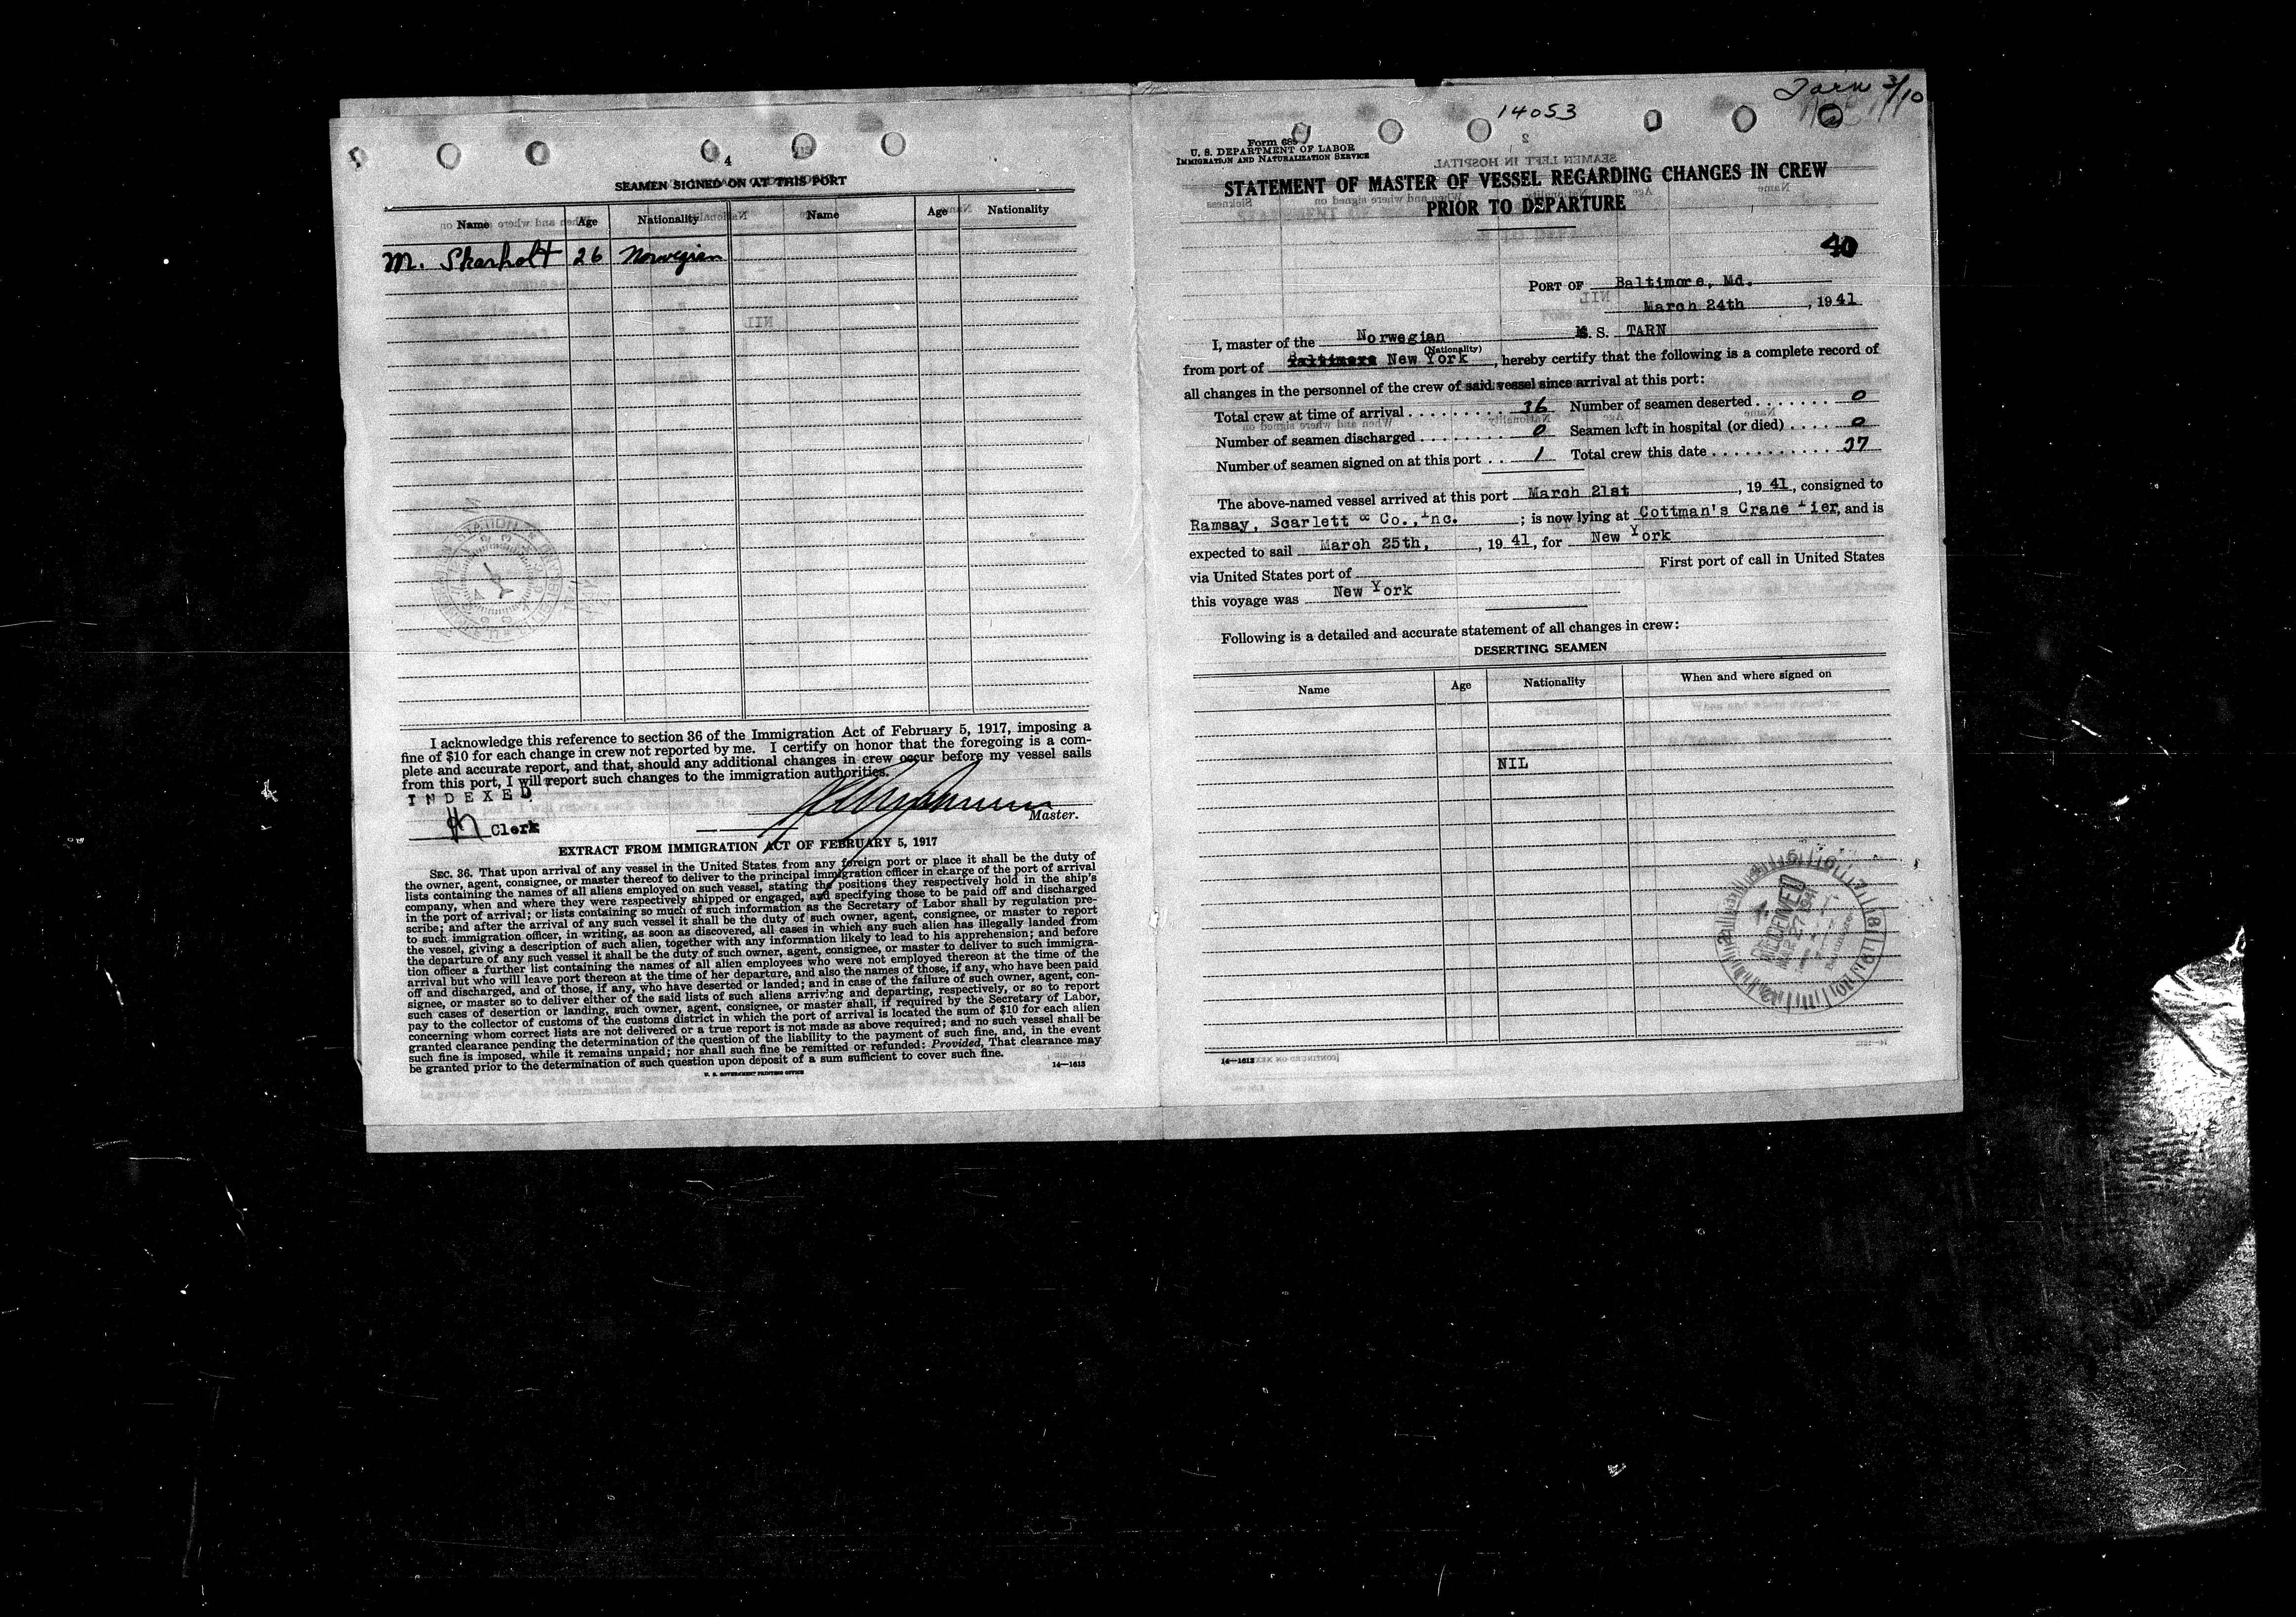 4
SEAMEN SIGNED ON AT THIS PORT
Name Age Nationality Name Age Nationality
M. Skarholt 26 Norwegian
I acknowledge this reference to section 36 of the Immigration Act of February 5, 1917, imposing a
fine of $10 for each change in crew not reported by me. I certify on honor that the foregoing is a com-
plete and accurate report, and that, should any additional changes in crew occur before my vessel sails
from this port, I will report such changes to the immigration authorities.
INDEXED
Clerk
Master.
EXTRACT FROM IMMIGRATION ACT OF FEBRUARY 5, 1917
SEC. 36. That upon arrival of any vessel in the United States from any foreign port or place it shall be the duty of
the owner, agent, consignee, or master thereof to deliver to the principal immigration officer in charge of the port of arrival
lists containing the names of all aliens employed on such vessel, stating the positions they respectively hold in the ship's
company, when and where they were respectively shipped or engaged, and specifying those to be paid off and discharged
in the port of arrival; or lists containing so much of such information as the Secretary of Labor shall by regulation pre-
scribe; and after the arrival of any such vessel it shall be the duty of such owner, agent, consignee, or master to report
to such immigration officer, in writing, as soon as discovered, all cases in which any such alien has illegally landed from
the vessel, giving a description of such alien, together with any information likely to lead to his apprehension; and before
the departure of any such vessel it shall be the duty of such owner, agent, consignee, or master to deliver to such immigra-
tion officer a further list containing the names of all alien employees who were not employed thereon at the time of the
arrival but who will leave port thereon at the time of her departure, and also the names of those, if any, who have been paid
off and discharged, and of those, if any, who have deserted or landed; and in case of the failure of such owner, agent, con-
signee, or master so to deliver either of the said lists of such aliens arriving and departing, respectively, or so to report
such cases of desertion or landing, such owner, agent, consignee, or master shall, if required by the Secretary of Labor,
pay to the collector of customs of the customs district in which the port of arrival is located the sum of $10 for each alien
concerning whom correct lists are not delivered or a true report is not made as above required; and no such vessel shall be
granted clearance pending the determination of the question of the liability to the payment of such fine, and, in the event
such fine is imposed, while it remains unpaid; nor shall such fine be remitted or refunded: Provided, That clearance may
be granted prior to the determination of such question upon deposit of a sum sufficient to cover such fine.
U. S. GOVERNMENT PRINTING OFFICE 14—1613
Tarn 3/10
14053
Form 685
U. S. DEPARTMENT OF LABOR
IMMIGRATION AND NATURALIZATION SERVICE
STATEMENT OF MASTER OF VESSEL REGARDING CHANGES IN CREW
PRIOR TO DEPARTURE
40
PORT OF Baltimore, Md.
March 24th, 1941
I, master of the Norwegian M. S. TARN
(Nationality)
from port of Baltimore New York, hereby certify that the following is a complete record of
all changes in the personnel of the crew of said vessel since arrival at this port:
Total crew at time of arrival 36 Number of seamen deserted 0
Number of seamen discharged 0 Seamen left in hospital (or died) 0
Number of seamen signed on at this port 1 Total crew this date 37
The above-named vessel arrived at this port March 21st, 1941, consigned to
Ramsay, Scarlett & Co., Inc.; is now lying at Cottman's Crane Pier, and is
expected to sail March 25th, 1941, for New York
via United States port of First port of call in United States
this voyage was New York
Following is a detailed and accurate statement of all changes in crew:
DESERTING SEAMEN
Name Age Nationality When and where signed on
NIL
RECEIVED
MAR 27 1941
14—1613